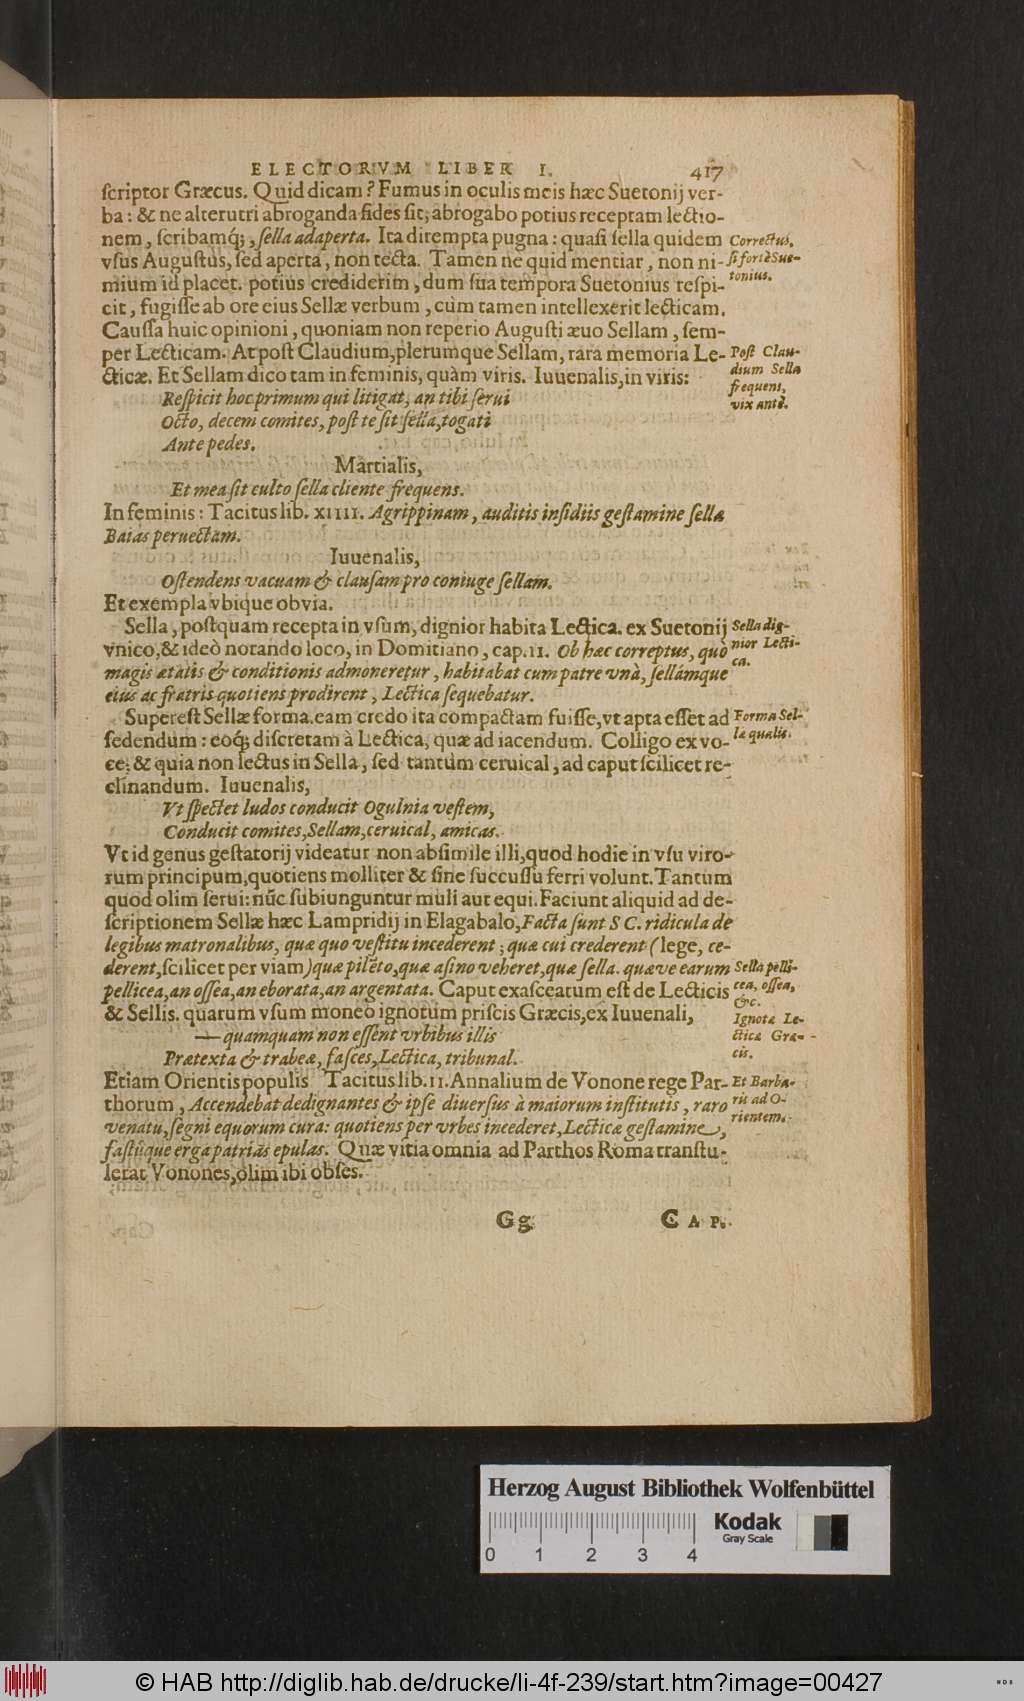 ELECTORVM LIBER I. 417
ſcriptor Græcus. Quid dicam? Fumus in oculis meis hæc Suetonij ver-
ba: & ne alterutri abroganda fides ſit; abrogabo potius receptam lectio-
nem, ſcribamq́;, ſella adaperta. Ita dirempta pugna: quaſi ſella quidem
Correctus,
vſus Auguſtus, ſed aperta, non tecta. Tamen ne quid mentiar, non ni-
ſi fortè Sue-
mium id placet. potius crediderim, dum ſua tempora Suetonius reſpi-
tonius.
cit, fugiſſe ab ore eius Sellæ verbum, cùm tamen intellexerit lecticam.
Cauſſa huic opinioni, quoniam non reperio Auguſti æuo Sellam, ſem-
per Lecticam. At poſt Claudium, plerumque Sellam, rara memoria Le-
Poſt Clau-
cticæ. Et Sellam dico tam in feminis, quàm viris. Iuuenalis, in viris:
dium Sella
Reſpicit hoc primum qui litigat, an tibi ſerui
frequens,
Octo, decem comites, poſt te ſit ſella, togati
vix antè.
Ante pedes.
Martialis,
Et mea ſit culto ſella cliente frequens.
In feminis: Tacitus lib. XIIII. Agrippinam, auditis inſidiis geſtamine ſellæ
Baias peruectam.
Iuuenalis,
Oſtendens vacuam & clauſam pro coniuge ſellam.
Et exempla vbique obvia.
Sella, poſtquam recepta in vſum, dignior habita Lectica. ex Suetonij
Sella dig-
vnico, & ideò notando loco, in Domitiano, cap. 11. Ob hæc correptus, quò
nior Lecti-
magis ætatis & conditionis admoneretur, habitabat cum patre vnà, ſellámque
ca.
eius ac fratris quotiens prodirent, Lectica ſequebatur.
Supereſt Sellæ forma. eam credo ita compactam fuiſſe, vt apta eſſet ad
Forma Sel-
ſedendum: eoq́; diſcretam à Lectica, quæ ad iacendum. Colligo ex vo-
læ qualis.
ce; & quia non lectus in Sella, ſed tantùm ceruical, ad caput ſcilicet re-
clinandum. Iuuenalis,
Vt ſpectet ludos conducit Ogulnia veſtem,
Conducit comites, Sellam, ceruical, amicas.
Vt id genus geſtatorij videatur non abſimile illi, quod hodie in vſu viro-
rum principum, quotiens molliter & ſine ſuccuſſu ferri volunt. Tantum
quod olim ſerui: nūc ſubiunguntur muli aut equi. Faciunt aliquid ad de-
ſcriptionem Sellæ hæc Lampridij in Elagabalo, Facta ſunt S C. ridicula de
legibus matronalibus, quæ quo veſtitu incederent; quæ cui crederent (lege, ce-
derent, ſcilicet per viam) quæ pilēto, quæ aſino veheret, quæ ſella. quæve earum
Sella pelli-
pellicea, an oſſea, an eborata, an argentata. Caput exaſceatum eſt de Lecticis
cea, oſſea,
&c.
& Sellis. quarum vſum moneo ignotum priſcis Græcis, ex Iuuenali,
Ignota Le-
— quamquam non eſſent vrbibus illis
cticæ Græ-
Prætexta & trabeæ, faſces, Lectica, tribunal.
cis.
Etiam Orientis populis Tacitus lib. 11. Annalium de Vonone rege Par-
Et Barba-
thorum, Accendebat dedignantes & ipſe diuerſus à maiorum inſtitutis, raro
ris ad O-
venatu, ſegni equorum cura: quotiens per vrbes incederet, Lecticæ geſtamine,
rientem.
faſtúque erga patrias epulas. Quæ vitia omnia ad Parthos Roma tranſtu-
lerat Vonones, olim ibi obſes.
Gg
CAP.
Herzog August Bibliothek Wolfenbüttel
Kodak
Gray Scale
0 1 2 3 4
© HAB http://diglib.hab.de/drucke/li-4f-239/start.htm?image=00427